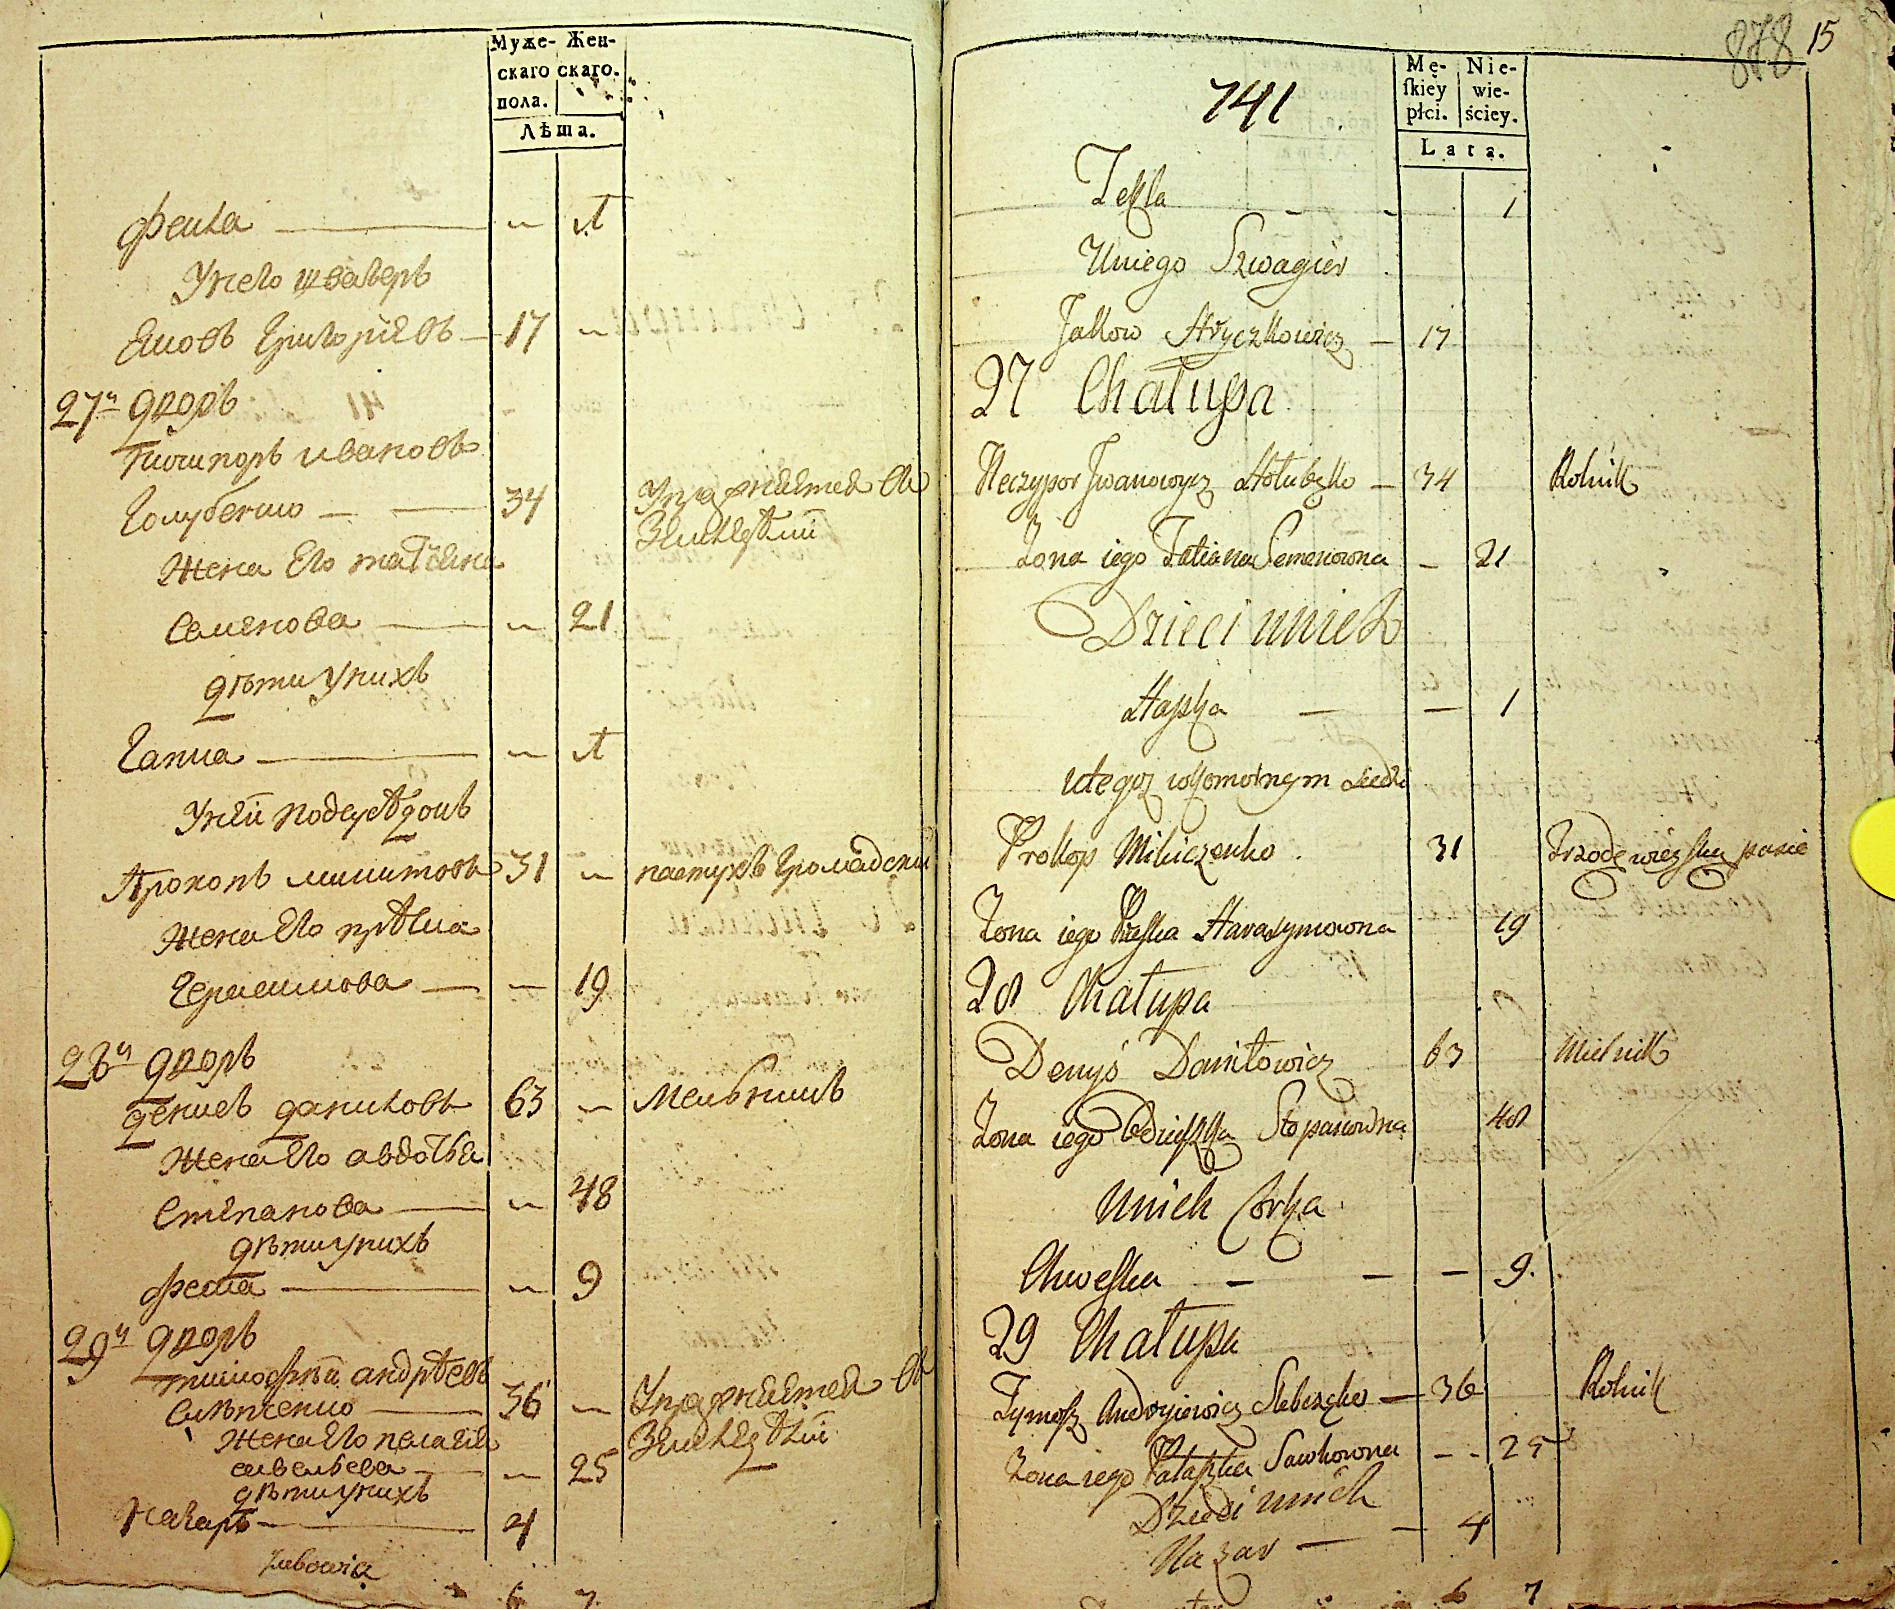 Муже- Жен-
скаго скаго.
пола.
Лѣта.
Фенка — 1
У него швагеръ
Яковъ Григориевъ — 17
27й дворъ
Ничипоръ Ивановъ
Голубенко — 34 Упражняется въ
Земледѣлии
Жена его татьяна
Семенова — 21
дѣти у нихъ
Гапка — 1
У ней подсуседокъ
Прокопъ микитовъ 31 пастухъ громадский
Жена его
Герасимова — 19
28й дворъ
денисъ даниловъ 63 Мельникъ
Жена его авдотья
Степанова — 48
дѣти у нихъ
феска — 9
29й дворъ
тимофѣй андрѣевъ
36 Упражняется въ
Земледѣлии
Жена его пелагея
савельева — 25
дѣти у нихъ
Назаръ — 4
6 7
878 15
741
Mę-
skiey
płci.
Nie-
wie-
ściey.
Lata.
Tekla - - 1
U niego Szwagier
Jakow Hryczkowicz — 17
27 Chałupa
Neczypor Iwanowycz Hołubenko — 34 Rolnik
Zona iego Tatiana Semenowna — 21
Dzieci u nich
Hapka — — 1
Prokop Mikiczenko 31
Zona iego Praska Harasymowna 19
28 Chałupa
Denys Daniłowicz 63 Mielnik
Zona iego Stepanowna 48
U nich Corka
Chweska — — — 9.
29 Chałupa
Tymosz Andryiewicz — 36 Rolnik
Zona iego Pałaszka Sawkowna — - 25
Dzieci u nich
Nazar — — 4
6 7